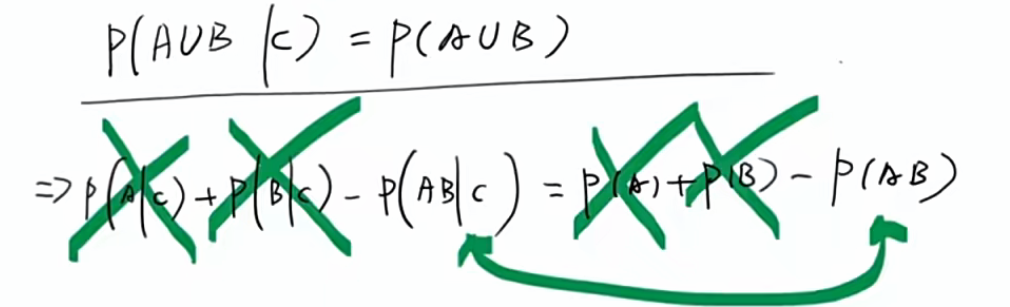 P(A∪B|C) = P(A∪B)
=> P(A|C) + P(B|C) - P(AB|C) = P(A) + P(B) - P(AB)